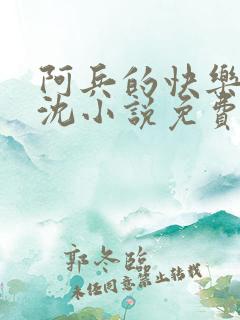 阿兵的快樂
沈小說免費
郭冬臨
未经同意禁止转载